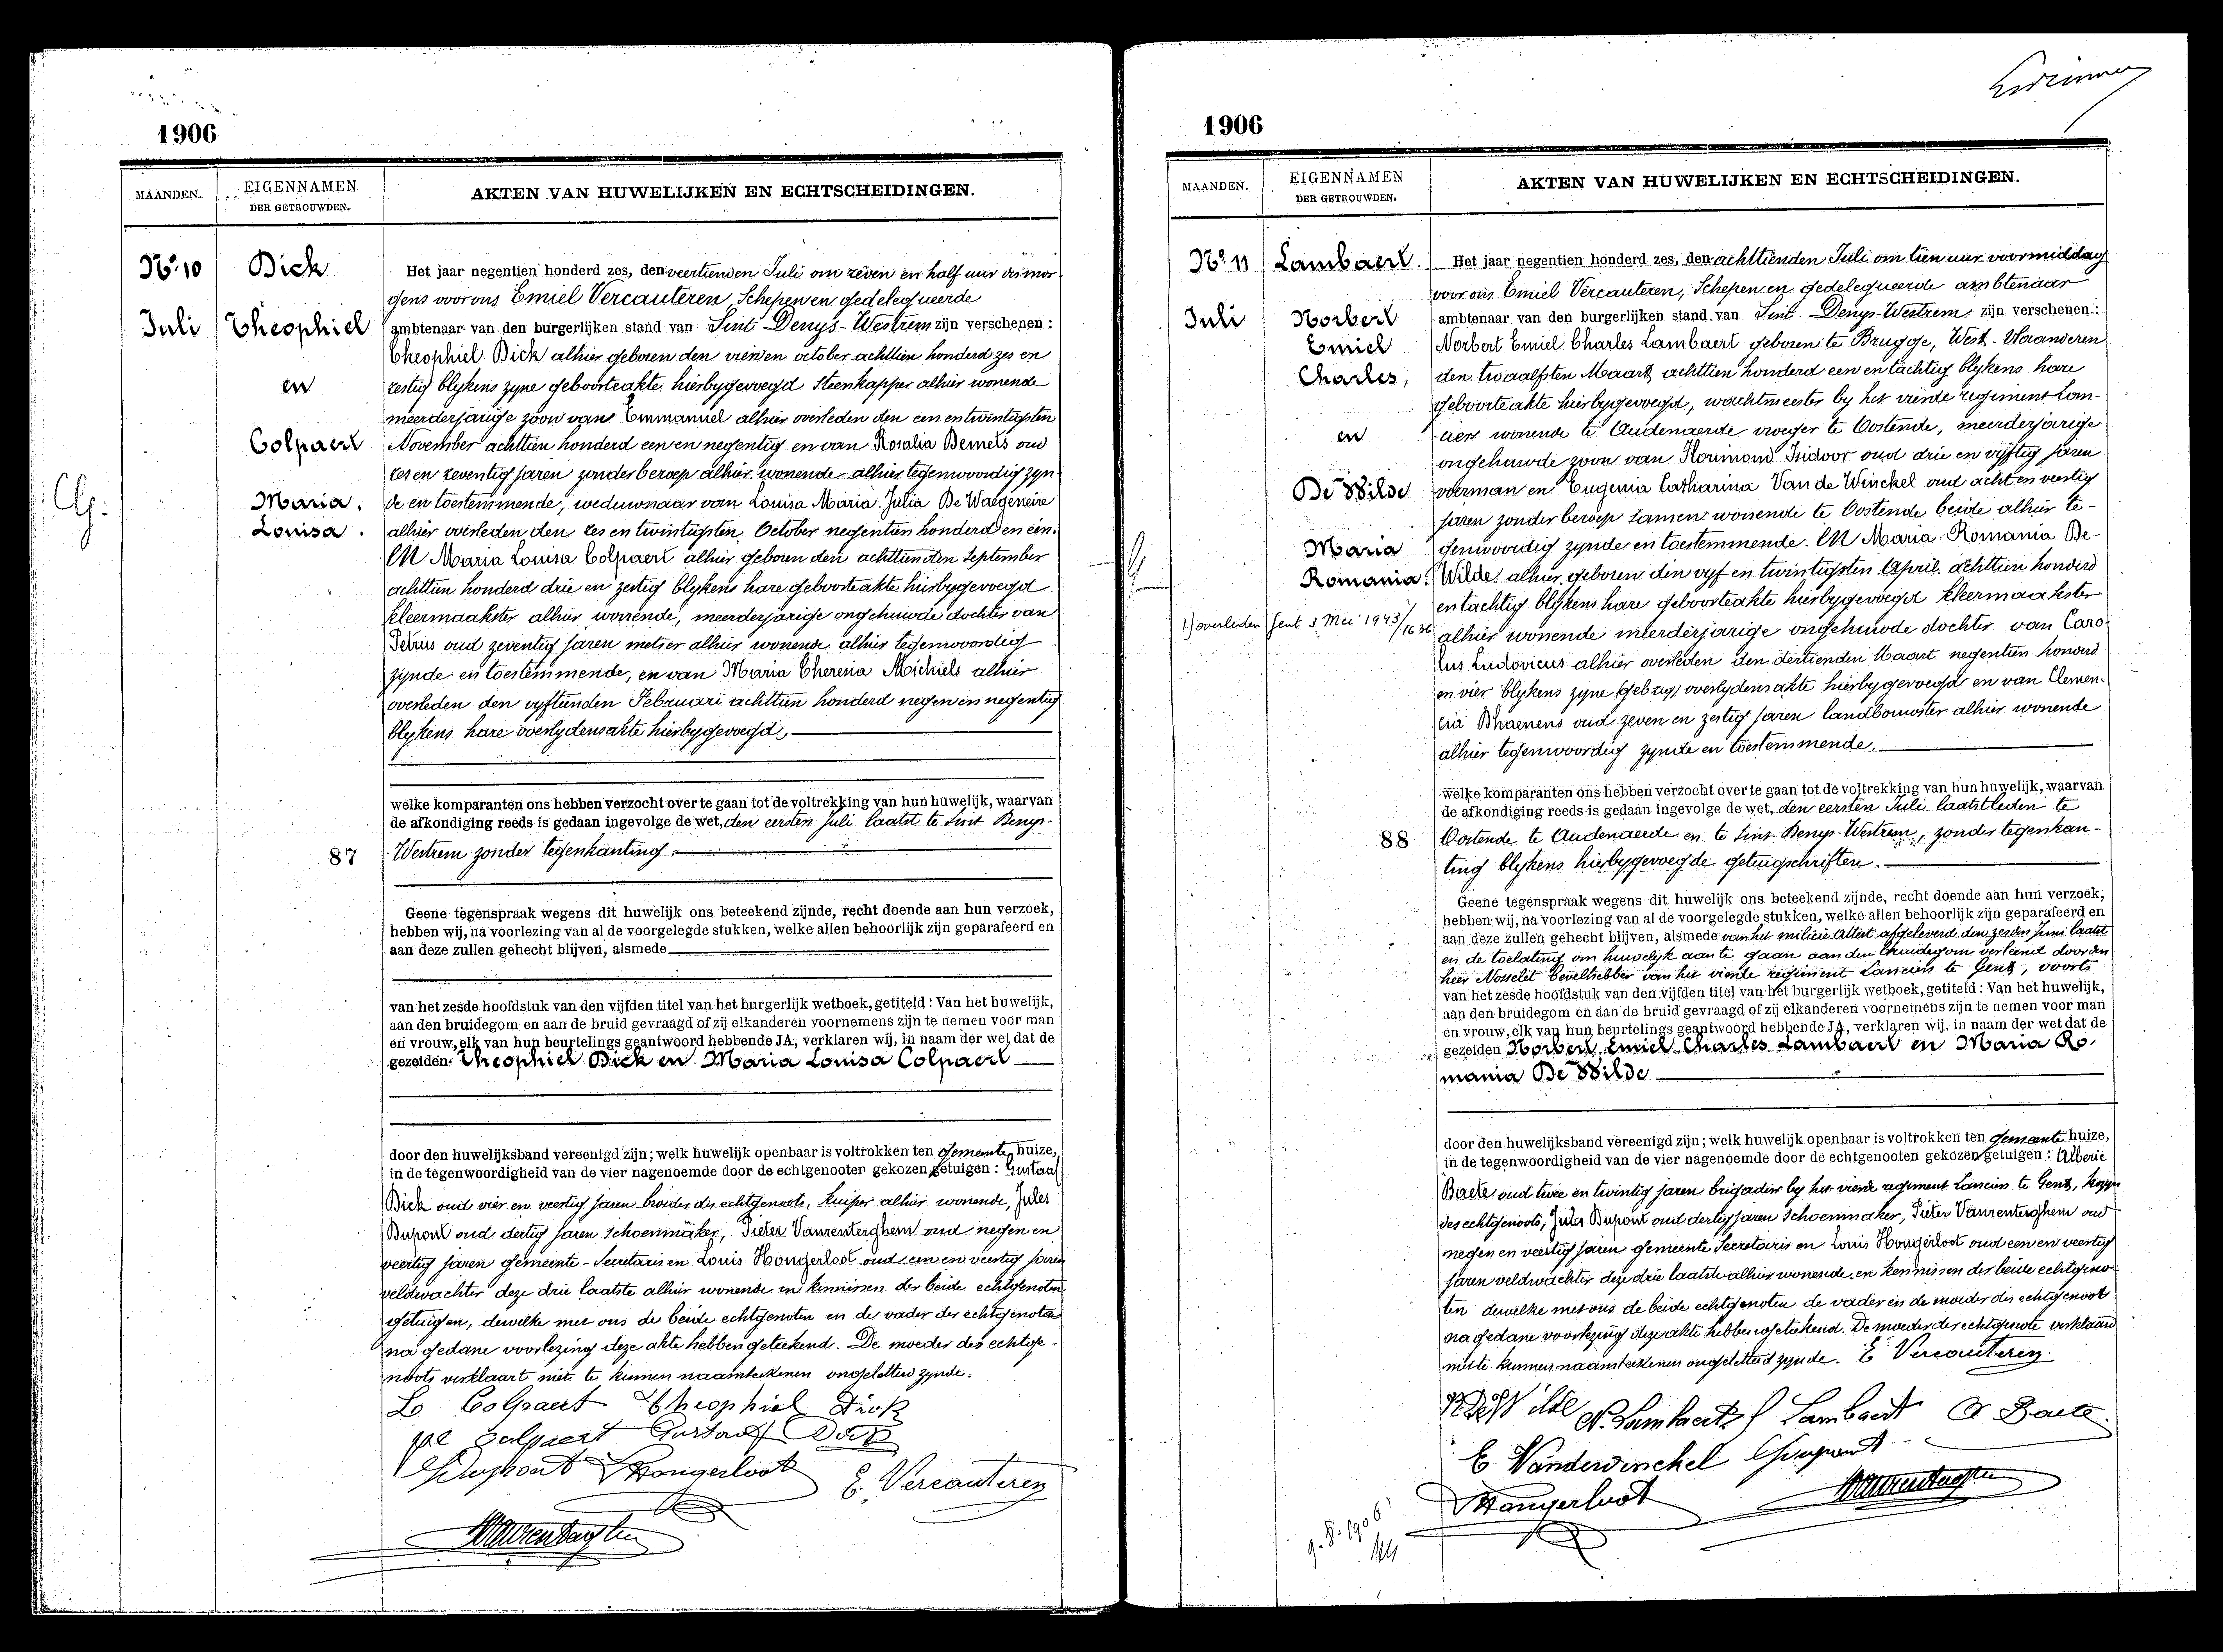 1906
MAANDEN.
EIGENNAMEN
DER GETROUWDEN.
AKTEN VAN HUWELIJKEN EN ECHTSCHEIDINGEN.
No. 10
Juli
Dick
Theophiel
en
Colpaert
Maria.
Louisa.
87
Het jaar negentien honderd zes, den veertienden Juli om zeven en half uur des mor
gens voor ons Emiel Vercauteren, Schepen en gedelegueerde
ambtenaar van den burgerlijken stand van Sint Denys-Westrem zijn verschenen:
Theophiel Dick alhier geboren den vierden october achttien honderd zes en
zestig blykens zyne geboorteakte hierbygevoegd Steenkapper alhier wonende
meerderjarige zoon van Emmanuel alhier overleden den een en twintigsten
November achttien honderd een en negentig en van Rosalia Bernels oud
zes en zeventig jaren zonder beroep alhier wonende alhier tegenwoordig zyn
de en toestemmende, weduwnaar van Louisa Maria Julia De Waegeneire
alhier overleden den zes en twintigsten October negentien honderd en een.
EN Maria Louisa Colpaert alhier geboren den achttienden September
achttien honderd drie en zestig blykens hare geboorteakte hierbygevoegd
kleermaakster alhier wonende, meerderjarige ongehuwde dochter van
Petrus oud zeventig jaren metser alhier wonende alhier tegenwoordig
zynde en toestemmende, en van Maria Theresia Michiels alhier
overleden den vyftienden Februari achttien honderd negen en negentig
blykens hare overlydensakte hierbygevoegd,
welke komparanten ons hebben verzocht over te gaan tot de voltrekking van hun huwelijk, waarvan
de afkondiging reeds is gedaan ingevolge de wet, den eersten Juli laatst te Sint Denys-
Westrem zonder tegenkanting.
Geene tegenspraak wegens dit huwelijk ons beteekend zijnde, recht doende aan hun verzoek,
hebben wij, na voorlezing van al de voorgelegde stukken, welke allen behoorlijk zijn geparafeerd en
aan deze zullen gehecht blijven, alsmede
van het zesde hoofdstuk van den vijfden titel van het burgerlijk wetboek, getiteld: Van het huwelijk,
aan den bruidegom en aan de bruid gevraagd of zij elkanderen voornemens zijn te nemen voor man
en vrouw, elk van hun beurtelings geantwoord hebbende JA, verklaren wij, in naam der wet dat de
gezeiden Theophiel Dick en Maria Louisa Colpaert
door den huwelijksband vereenigd zijn; welk huwelijk openbaar is voltrokken ten gemeente huize,
in de tegenwoordigheid van de vier nagenoemde door de echtgenooten gekozen getuigen: Gustaaf
Dick oud vier en veertig jaren broeder des echtgenoots, kuiper alhier wonende, Jules
Dupont oud dertig jaren Schoenmaker, Pieter Vanrenterghem oud negen en
veertig jaren gemeente-Secretaris en Louis Hongerloot oud een en veertig jaren
veldwachter deze drie laatste alhier wonende en kennissen der beide echtgenoten
getuigen, dewelke met ons de beide echtgenoten en de vader der echtgenote
na gedane voorlezing deze akte hebben geteekend. De moeder des echtge-
noots verklaart niet te kunnen naamteekenen ongeletterd zynde.
L Colpaert Theophiel Dick
Colpaert Gustaaf Dick
Dupont Hongerloot E. Vercauteren
Vanrenterghem
1906
MAANDEN.
EIGENNAMEN
DER GETROUWDEN.
AKTEN VAN HUWELIJKEN EN ECHTSCHEIDINGEN.
No. 11
Juli
Lambaert.
Norbert
Emiel
Charles,
en
De Wilde
Maria
Romania.
1) overleden Gent 3 Mei 1943/1636
88
Het jaar negentien honderd zes, den achttienden Juli om tien uur voormiddag
voor ons Emiel Vercauteren, Schepen en gedelegueerde ambtenaar
ambtenaar van den burgerlijken stand van Sint Denys-Westrem zijn verschenen:
Norbert Emiel Charles Lambaert geboren te Brugge, West-Vlaanderen
den twaalfsten Maart achttien honderd een en tachtig blykens hare
geboorteakte hierbygevoegd, wachtmeester by het vierde regiment Lan-
ciers wonende te Audenaerde vroeger te Oostende, meerderjarige
ongehuwde zoon van Florimond Isidoor oud drie en vyftig jaren
voerman en Eugenia Catharina Van de Winckel oud acht en veertig
jaren zonder beroep samen wonende te Oostende beide alhier te-
genwoordig zynde en toestemmende. EN Maria Romania De-
Wilde alhier geboren den vyf en twintigsten April achttien honderd
en tachtig blykens hare geboorteakte hierbygevoegd kleermaakster
alhier wonende meerderjarige ongehuwde dochter van Caro
lus Ludovicus alhier overleden den dertienden Maart negentien honderd
en vier blykens zyne overlydensakte hierbygevoegd en van Clemen-
cia Dhaenens oud zeven en zestig jaren landbouwster alhier wonende
alhier tegenwoordig zynde en toestemmende.
welke komparanten ons hebben verzocht over te gaan tot de voltrekking van hun huwelijk, waarvan
de afkondiging reeds is gedaan ingevolge de wet, den eersten Juli laatstleden te
Oostende te Audenaerde en te Sint Denys-Westrem, zonder tegenkan-
ting blykens hierbygevoegde getuigschriften.
Geene tegenspraak wegens dit huwelijk ons beteekend zijnde, recht doende aan hun verzoek,
hebben wij, na voorlezing van al de voorgelegde stukken, welke allen behoorlijk zijn geparafeerd en
aan deze zullen gehecht blijven, alsmede van het milicie Attest afgeleverd den zesden Juni laatst
en de toelating om huwelyk aan te gaan aan den bruidegom verleend door den
heer Nosselet bevelhebber van het vierde regiment Lanciers te Gent, voorts
van het zesde hoofdstuk van den vijfden titel van het burgerlijk wetboek, getiteld: Van het huwelijk,
aan den bruidegom en aan de bruid gevraagd of zij elkanderen voornemens zijn te nemen voor man
en vrouw, elk van hun beurtelings geantwoord hebbende JA, verklaren wij, in naam der wet dat de
gezeiden Norbert Emiel Charles Lambaert en Maria Ro-
mania De Wilde
door den huwelijksband vereenigd zijn; welk huwelijk openbaar is voltrokken ten gemeente huize,
in de tegenwoordigheid van de vier nagenoemde door de echtgenooten gekozen getuigen: Alberic
Baete oud twee en twintig jaren brigadier by het vierde regiment Lanciers te Gent,
des echtgenoots, Jules Dupont oud dertig jaren Schoenmaker, Pieter Vanrenterghem oud
negen en veertig jaren gemeente Secretaris en Louis Hongerloot oud een en veertig
jaren veldwachter deze drie laatste alhier wonende en kennissen der beide echtgeno-
ten dewelke met ons de beide echtgenoten de vader en de moeder des echtgenoots
na gedane voorlezing deze akte hebben geteekend. De moeder der echtgenote verklaard
niet te kunnen naamteekenen ongeletterd zynde. E Vercauteren
R De Wilde N. Lambaert f Lambaert A Baete
E Vanderwinckel Dupont
Hongerloot Vanrenterghem
9.8.1906